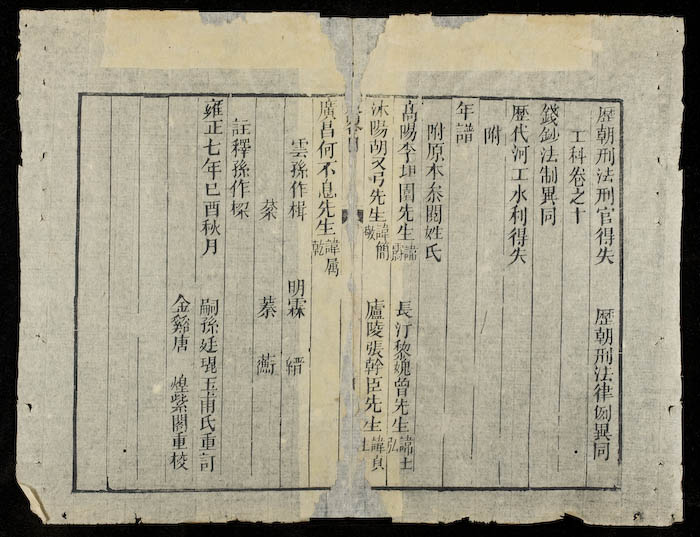 歷朝刑法刑官得失　歷朝刑法律例異同
工科卷之十
錢鈔法制異同
歷代河工水利得失
附
年譜
附原本叅閱姓氏
高陽李坦園先生諱霨　長汀黎媿曾先生諱士弘
沐陽胡又弓先生諱簡敬　廬陵張幹臣先生諱貞生
廣昌何不息先生諱属乾
雲孫作楫　明霖　縉
蔡　蓁　薌
註釋孫作樑
雍正七年巳酉秋月　嗣孫廷琨玉甫氏重訂
金谿唐　煌紫閣重校